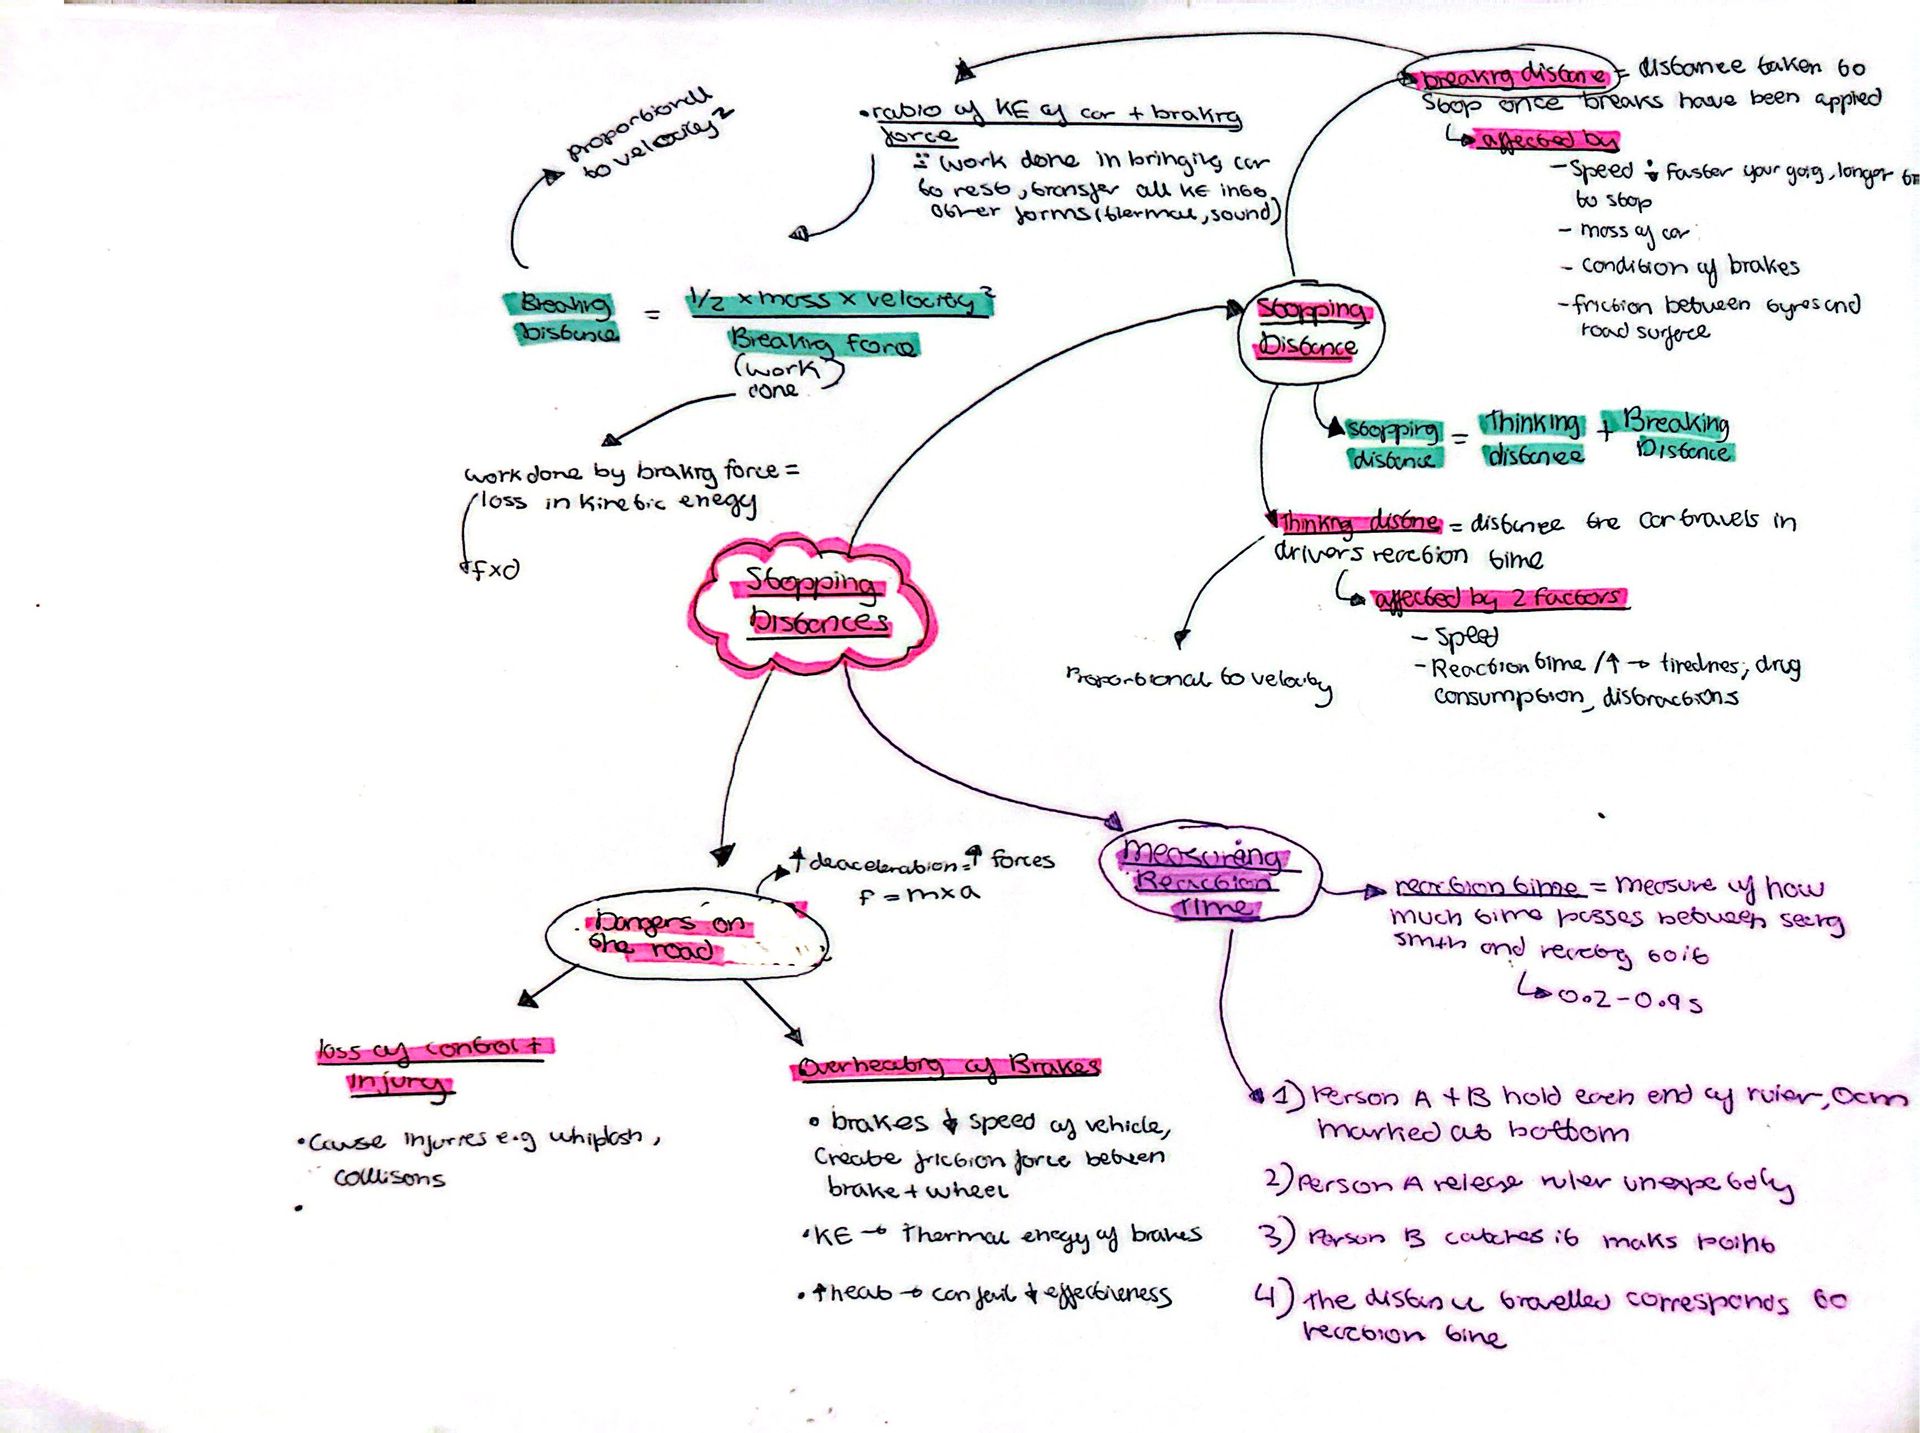 breakrg distane = distance taken to
stop once breaks have been appied
affected by
- Speed ÷ Faster your goig, longer
to stop
- mass of car
- condition of brakes
- friction between tyres and
road surface
• ratio of KE of car + brakrg
force
∴ work done in bringing car
to rest, transfer all KE into
other forms (thermal, sound)
proportionall
to velocity²
Breakrg
Distance
=
1/2 x mass x velocity²
Breakrg force
(work
done)
work done by brakrg force =
loss in kinetic enegy
f x d
Stopping
Distance
stopping
distance
=
Thinking
distance
+
Breaking
Distance
Thinkrg distne = distance the car travels in
drivers reaction time
affected by 2 factors
- Speed
- Reaction time / ↑ → tirednes, drug
consumption, distractions
Proportional to velocity
Stopping
Distances
Measuring
Reaction
Time
reaction time = measure of how
much time passes between seeing
smth and reacting to it
↳ 0.2 - 0.9 s
1) Person A + B hold each end of ruler, 0cm
marked at bottom
2) Person A release ruler unexpectdly
3) Person B catches it maks point
4) The distance travelled corresponds to
reaction time
Dangers on
the road
↑ deaceleration = ↑ forces
F = m x a
loss of control +
Injury
• Cause injuries e.g whiplash,
collisons
Overheatrg of Brakes
• brakes ↓ speed of vehicle,
Create friction force between
brake + wheel
• KE → Thermal enegy of brakes
• ↑ heat → can fail ↓ effectiveness